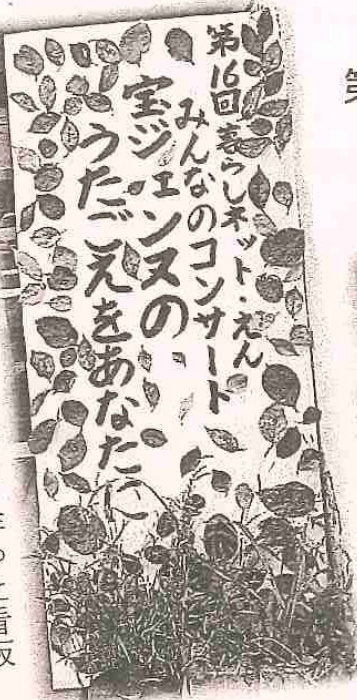 第16回暮らしネット・えん
みんなのコンサート
宝ジェンヌの
うたごえをあなたに